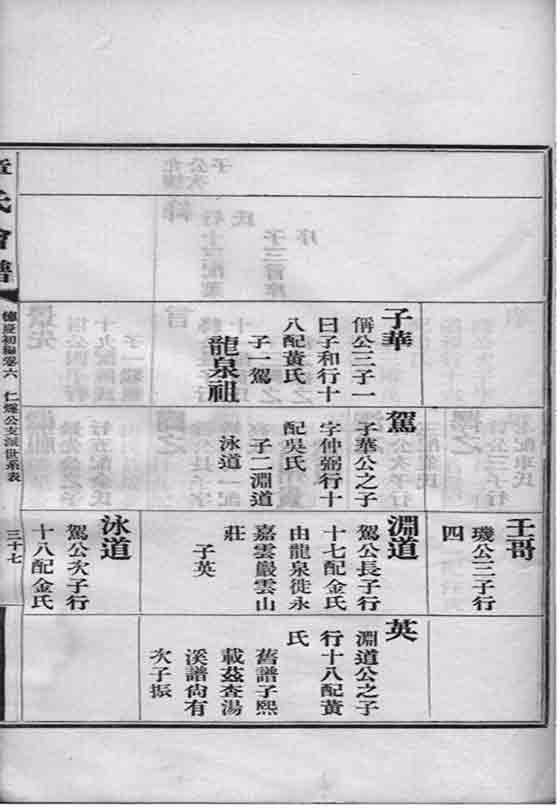 子華
偁公三子一
曰子和行十
八配黃氏
子一駕
龍泉祖
駕
子華公之子
字仲弼行十
配吳氏
子二淵道
泳道
王哥
璣公三子行
四
淵道
駕公長子行
十七配金氏
由龍泉徙永
嘉雲嚴雲山
莊
子英
泳道
駕公次子行
十八配金氏
英
淵道公之子
行十八配黃
氏
舊譜子熙
載茲查湯
溪譜尙有
次子振
章氏會譜
德慶初編卷六 仁燧公支派世系表
三十七